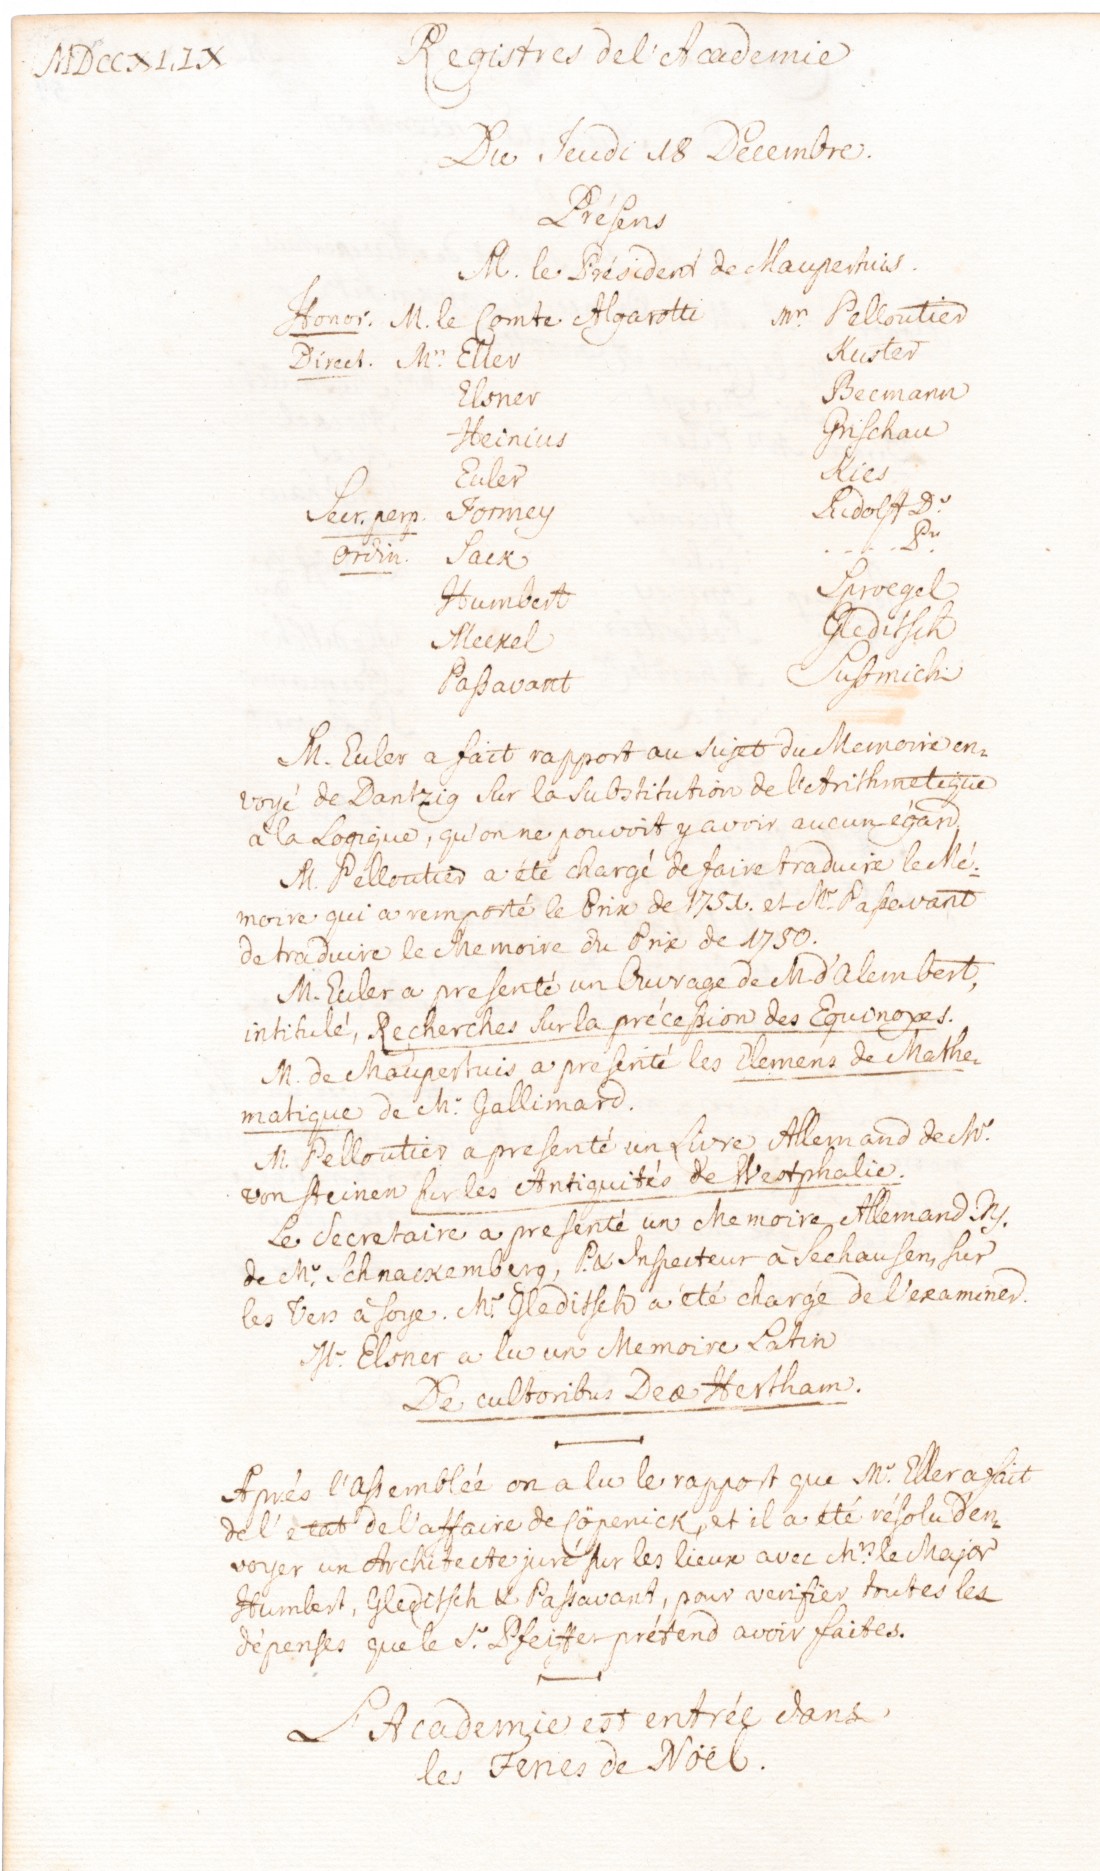 MDCCXLIX
Registres de l'Academie
Du Jeudi 18 Decembre.
Présens
M. le Président de Maupertuis.
Honor. M. le Comte Algarotti Mrs Pelloutier
Direct. Mrs Eller Kuster
Elsner Becmann
Heinius Grischau
Euler Kies
Secr. perp. Formey Ludolff Dr
Ordin. Sack . . . . Pr.
Humbert Sproegel
Meckel Gleditsch
Passavant Sussmich.
M. Euler a fait rapport au sujet du Memoire en-
voyé de Dantzig sur la substitution de l'Arithmetique
à la Logique, qu'on ne pouvoit y avoir aucun égard.
M. Pelloutier a été chargé de faire traduire le Mé-
moire qui a remporté le Prix de 1751. et Mr. Passavant
de traduire le Memoire du Prix de 1750.
M. Euler a presenté un Ouvrage de M d'Alembert,
intitulé, Recherches sur la précession des Equinoxes.
M. de Maupertuis a presenté les Elemens de Mathe-
matique de Mr. Gallimard.
M. Pelloutier a presenté un Livre Allemand de Mr.
von Steinen sur les Antiquités de Westphalie.
Le Secretaire a presenté un Memoire Allemand Ms.
de Mr. Schnackemberg, P. & Inspecteur à Seehausen, sur
les Vers à soye. Mr. Gleditsch a été chargé de l'examiner.
Mr. Elsner a lu un Memoire Latin
De cultoribus Deæ Hertham.
Après l'Assemblée on a lu le rapport que Mr. Eller a fait
de l'etat de l'affaire de Cöpenick, et il a été résolu d'en-
voyer un Architecte juré sur les lieux avec Mrs le Major
Humbert, Gleditsch & Passavant, pour verifier toutes les
dépenses que le Sr. Pfeiffer prétend avoir faites.
L'Academie est entrée dans
les Feries de Noël.